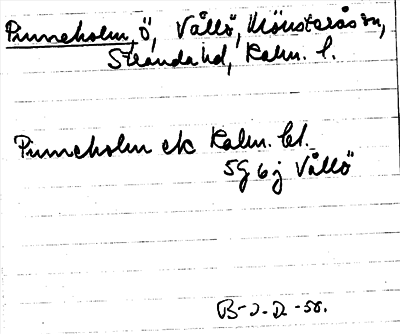 Pinneholm, ö, Vållö, Mönsterås sn,
Stranda hd, Kalm. l.
Pinneholm ek Kalm. bl.
5G 6j Vållö
B-J.D.-58.